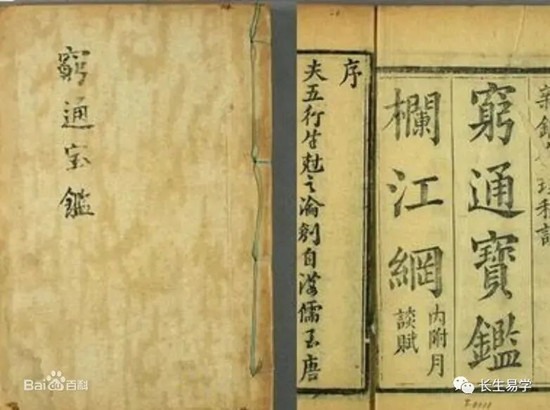 窮通宝鑑
窮通寶鑑
欄江網
内附月
談賦
序
夫五行生尅之論創自漢儒至唐
Bai百科
长生易学